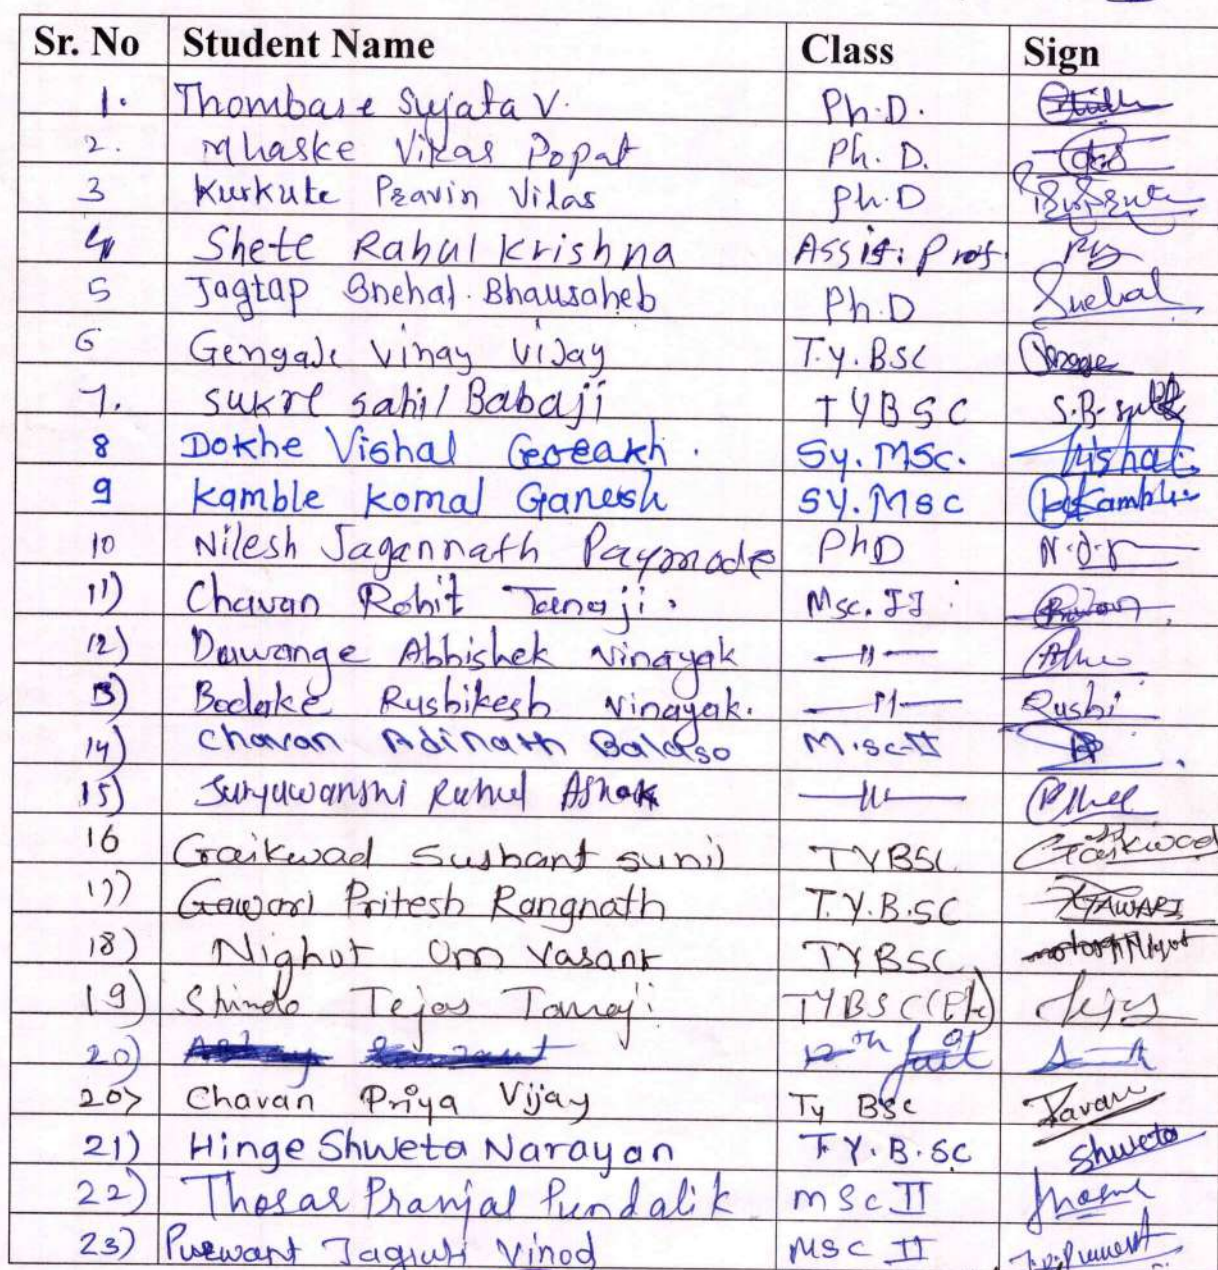 Sr. No Student Name Class Sign
1. Thombare Sujata V. Ph.D.
2. Mhaske Vikas Popat Ph. D.
3 Kurkute Pravin Vilas Ph.D
4 Shete Rahul Krishna Assit. Prof.
5 Jagtap Snehal. Bhausaheb Ph.D Snehal
6 Gengaje Vinay Vijay T.Y.BSC
7. Sukre Sahil Babaji TYBSC S.B.
8 Dokhe Vishal Gorakh. Sy. MSc. Vishal
9 Kamble Komal Ganesh SY.Msc Kamble
10 Nilesh Jagannath Paymode PhD N.J.P
11) Chavan Rohit Tanaji. Msc. II
12) Dawange Abhishek Vinayak —11—
13) Bodake Rushikesh Vinayak. —11— Rushi
14) Chavan Adinath Balaso M.sc-II
15) Suryawanshi Rahul Ashok —11—
16 Gaikwad Sushant Sunil TYBSC Gaikwad
17) Gawari Pritesh Rangnath T.Y.B.SC GAWARI
18) Nighot Om Vasant TYBSC
19) Shinde Tejas Tanaji TYBSC Tejas
20) 12th
20) Chavan Priya Vijay Ty BSc
21) Hinge Shweta Narayan T.Y.B.SC Shweta
22) Thosar Pranjal Pundalik MSc II
23) Purwant Jagruti Vinod MSC II